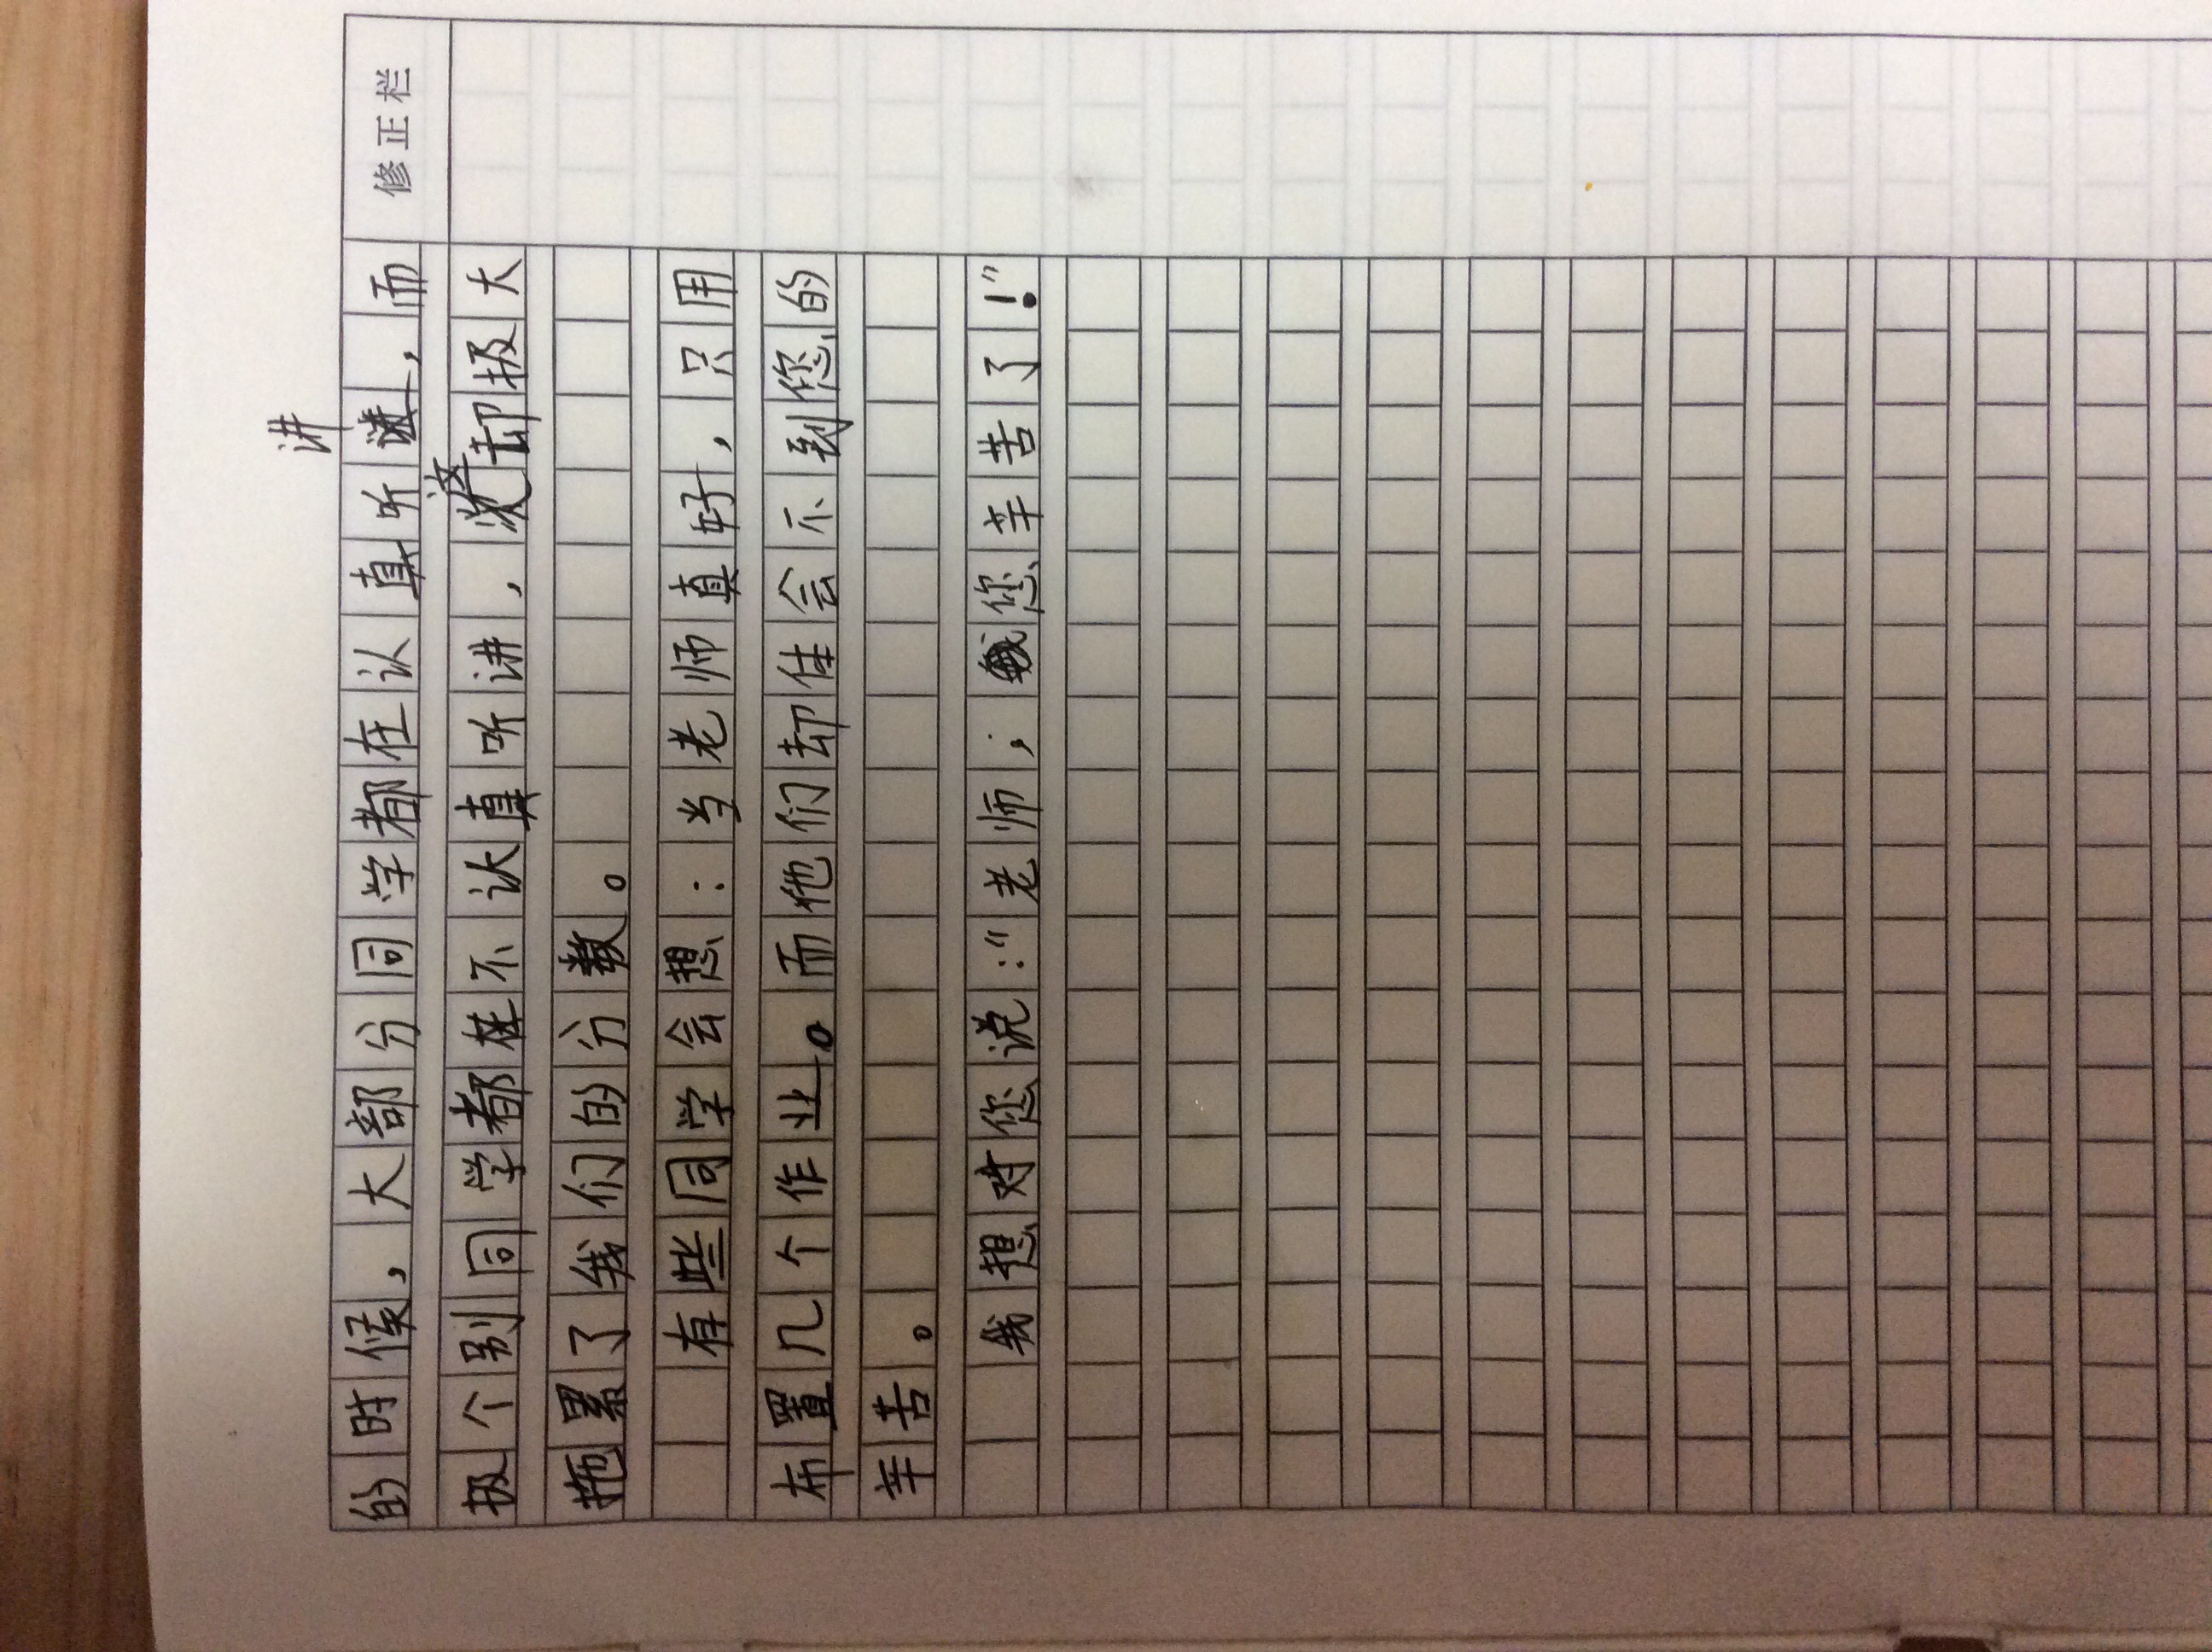 修正栏
讲
的时候，大部分同学都在认真听，而
极个别同学都在不认真听讲，却极大
拖累了我们的分数。
有些同学会想：当老师真好，只用
布置几个作业。而他们却体会不到您的
辛苦。
我想对您说：“老师；您辛苦了！”